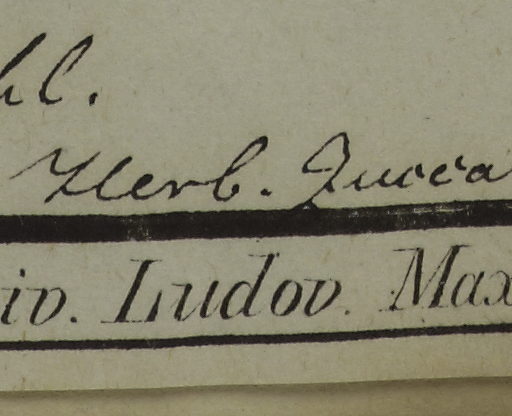 hl.
Herb. Zucca
iv. Ludov. Max